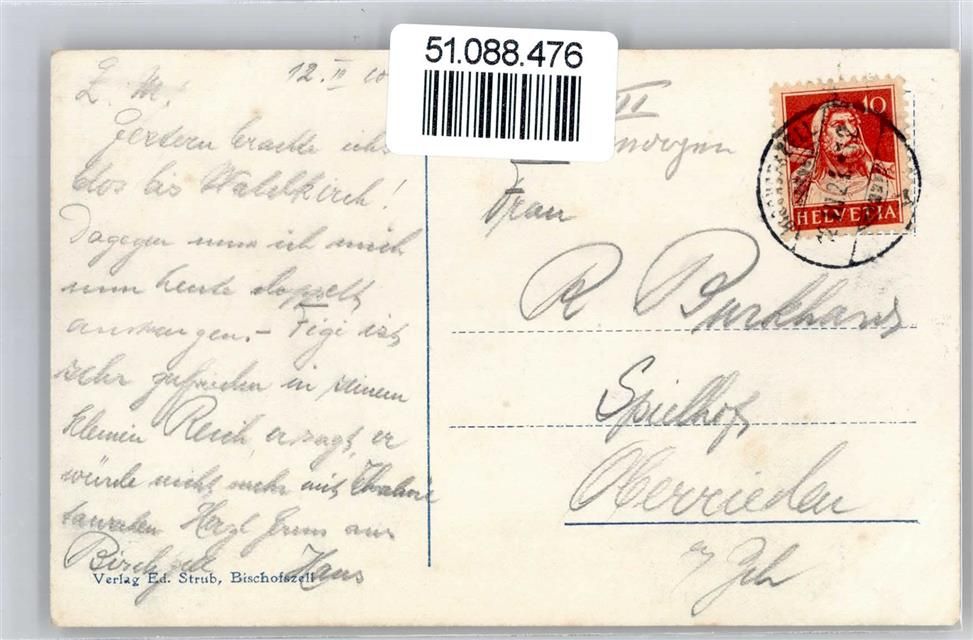 51.088.476
12. III
L. M.
Gestern brachte ich's
blos bis Waldkirch!
Dagegen muss ich mich
nun heute doppelt
anstrengen. – Figi ist
sehr zufrieden in seinem
kleinen Reich er sagt, er
würde nicht mehr mit
tauschen Herzl. Gruss aus
Bischofszell Hans
Verlag Ed. Strub, Bischofszell
II
morgen
Frau
R Burkhard
Spielhof
Oberrieden
a/ Zch
10
HELVETIA